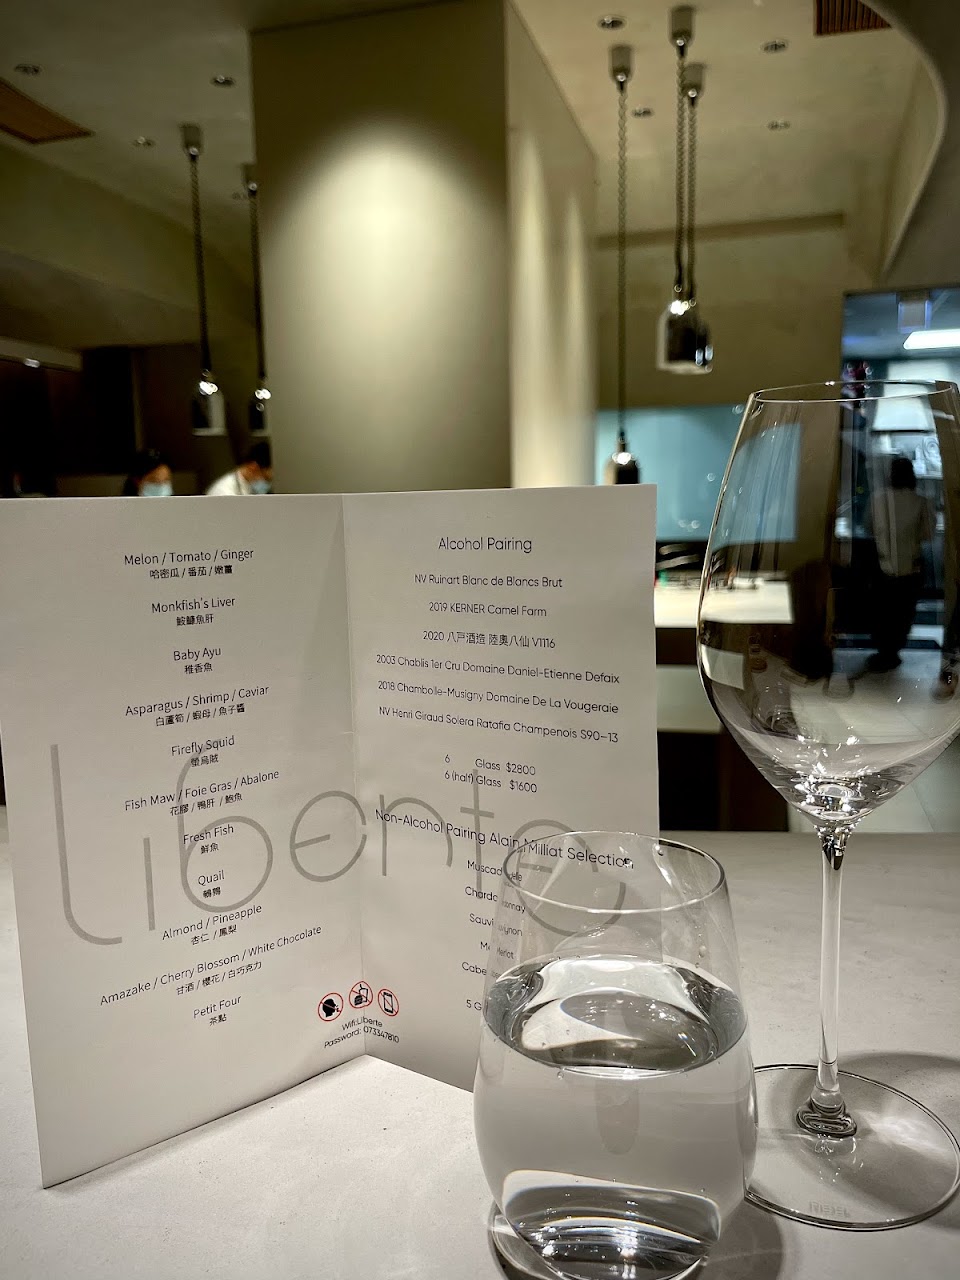 Melon / Tomato / Ginger
哈密瓜 / 番茄 / 嫩薑
Monkfish's Liver
鮟鱇魚肝
Baby Ayu
稚香魚
Asparagus / Shrimp / Caviar
白蘆筍 / 蝦母 / 魚子醬
Firefly Squid
螢烏賊
Fish Maw / Foie Gras / Abalone
花膠 / 鴨肝 / 鮑魚
Fresh Fish
鮮魚
Quail
鵪鶉
Almond / Pineapple
杏仁 / 鳳梨
Amazake / Cherry Blossom / White Chocolate
甘酒 / 櫻花 / 白巧克力
Petit Four
茶點
liberte
Alcohol Pairing
NV Ruinart Blanc de Blancs Brut
2019 KERNER Camel Farm
2020 八戸酒造 陸奥八仙 V1116
2003 Chablis 1er Cru Domaine Daniel-Etienne Defaix
2018 Chambolle-Musigny Domaine De La Vougeraie
NV Henri Giraud Solera Ratafia Champenois S90-13
6 Glass $2800
6 (half) Glass $1600
Non-Alcohol Pairing Alain Milliat Selection
Merlot
5 G
Wifi:Liberte
Password: 073347810